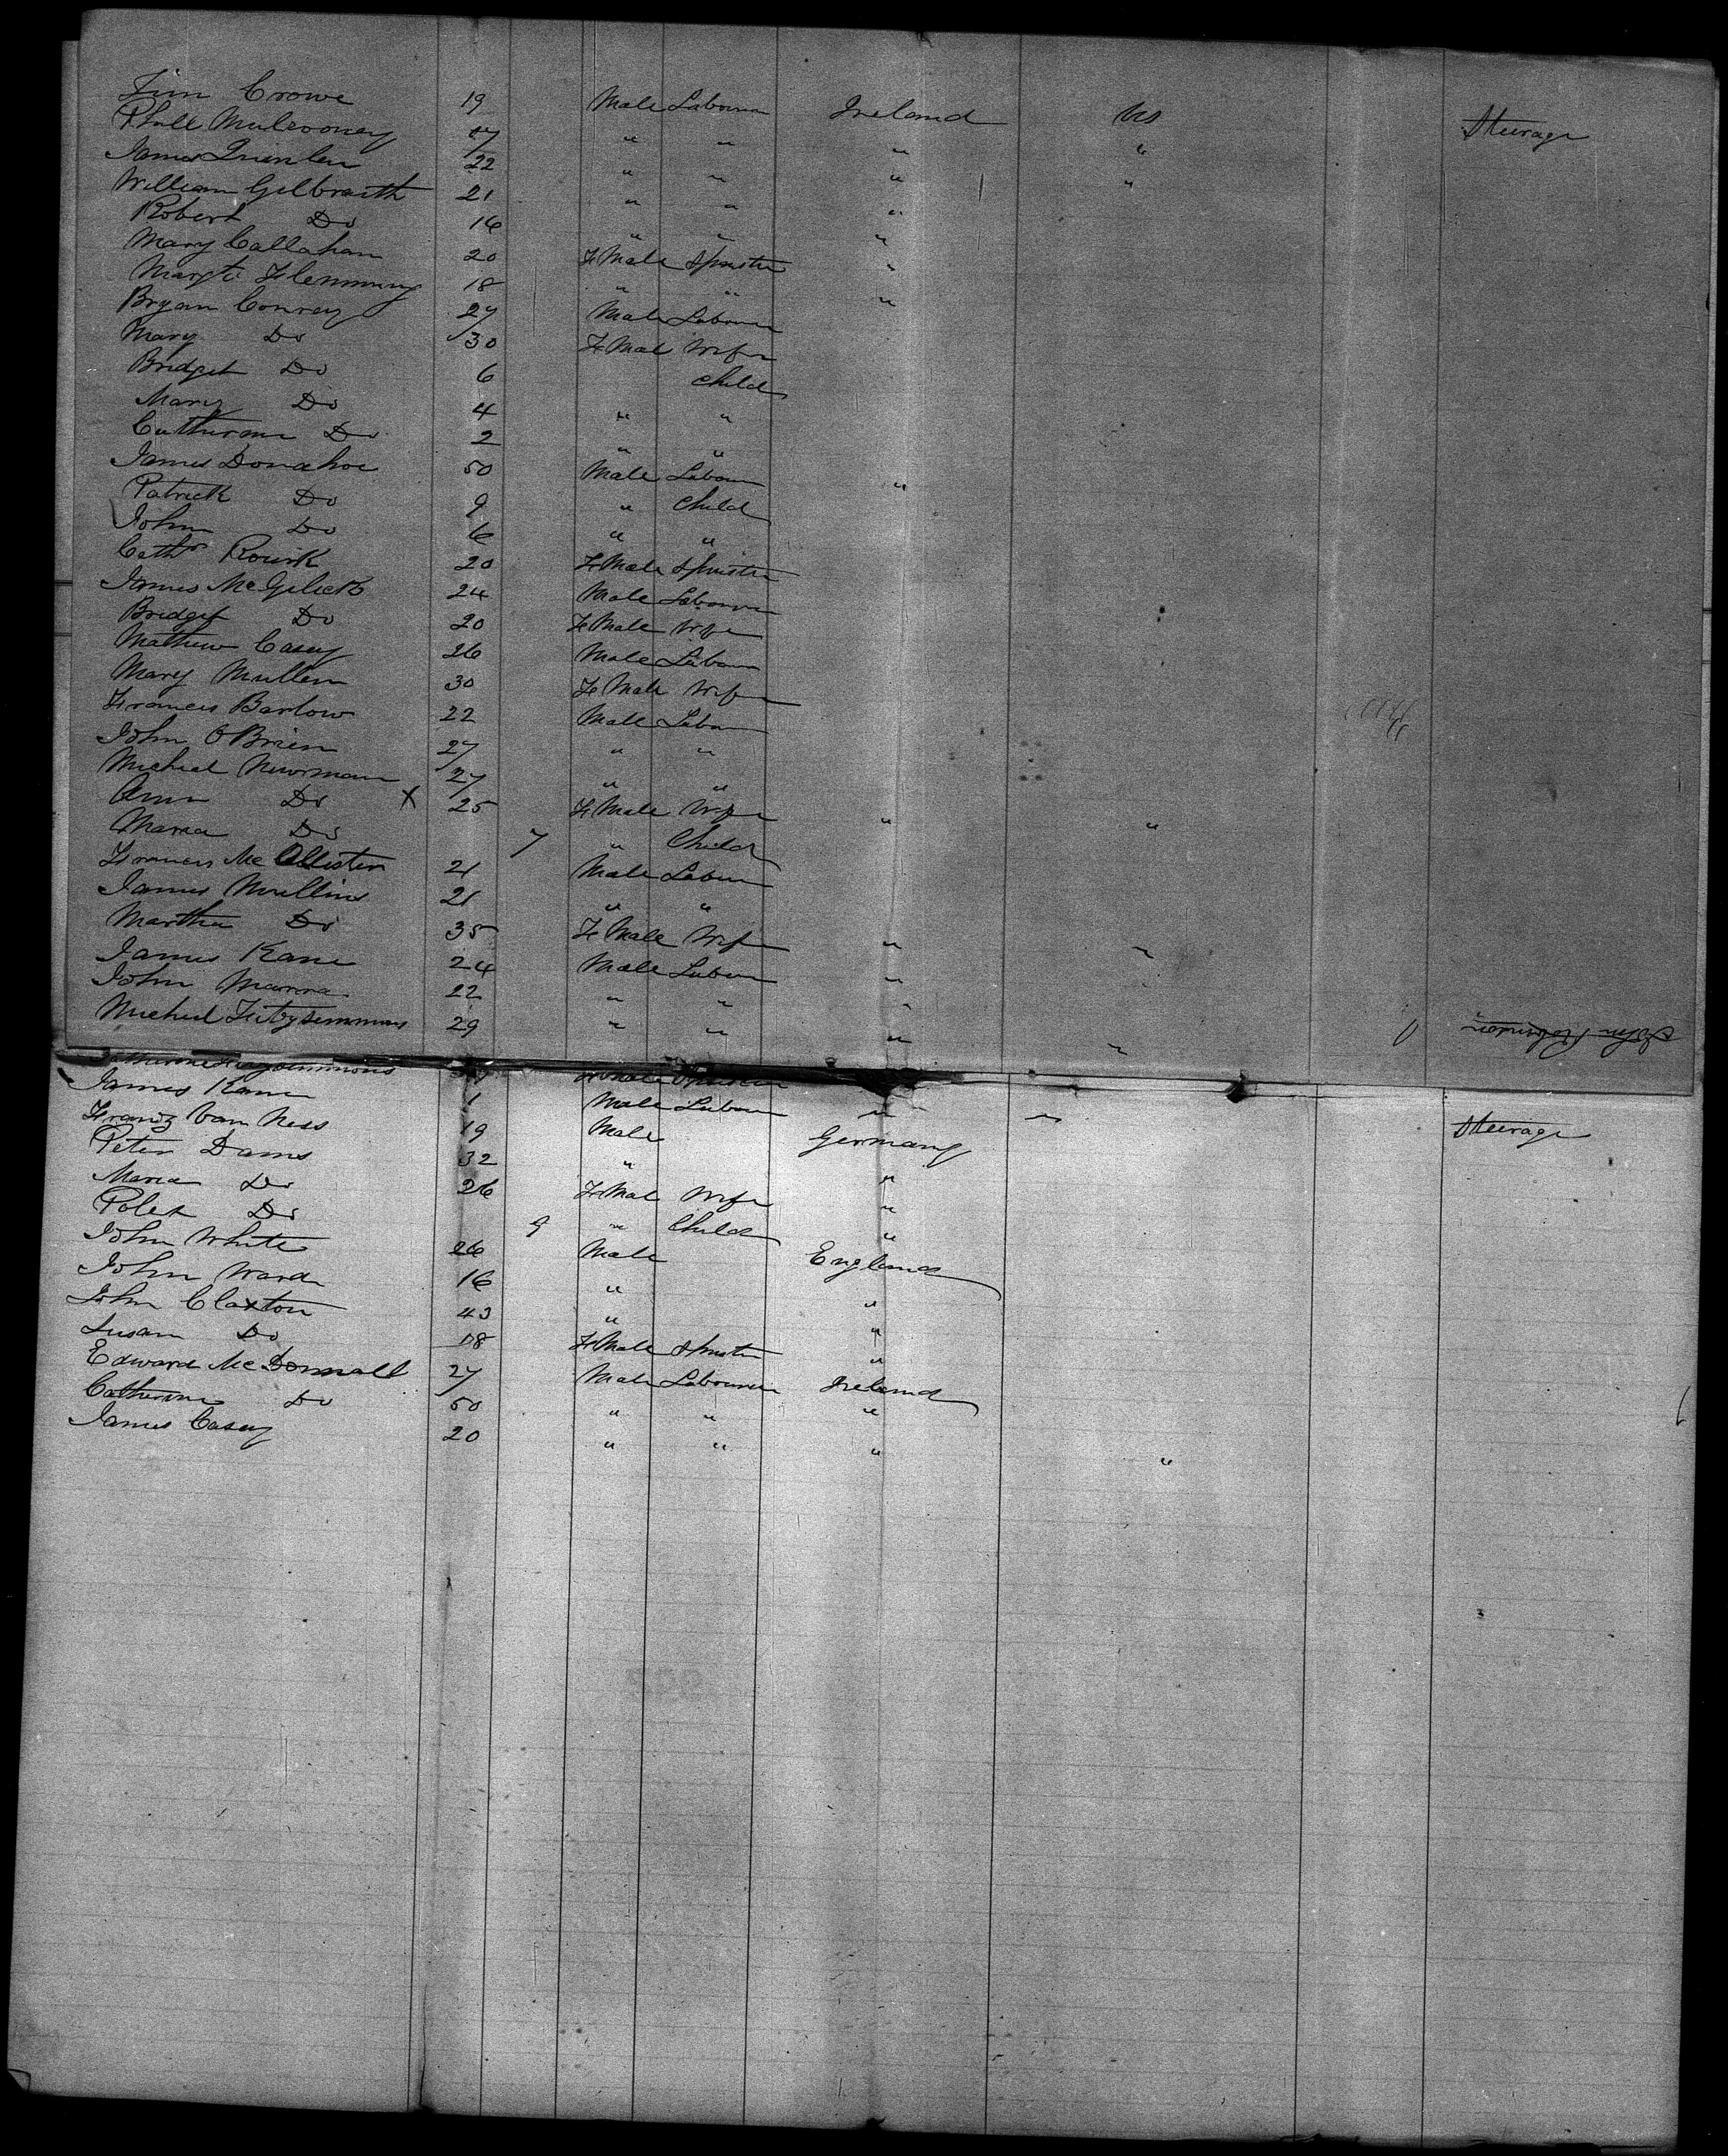 Tim Crowe 19 Male Labourer Ireland US Steerage
Phill Mulrooney 17 " " " "
James Quinlan 22 " " " "
William Gilbraith 21 " " "
Robert Do 16 " " "
Mary Callahan 20 FeMale Spinster "
Margt Flemming 18 " " "
Bryan Conroy 27 Male Labourer
Mary Do 30 FeMale Wife
Bridget Do 6 Child
Mary Do 4 " "
Catherine Do 2 " "
James Donahoe 50 Male Labour "
Patrick Do 9 " Child
John Do 6 " "
Cathr Rourk 20 FeMale Spinster
James 24 Male Labourer
Bridget Do 20 FeMale Wife
Mathew Casey 26 Male Labour
Mary Mullen 30 FeMale Wife
Francis Barlow 22 Male Labour
John OBrien 27 " "
Micheal Newman 27 " "
Ann Do X 25 FeMale Wife " "
Maria Do 7 " Child
Francis McAllister 21 Male Labour
James Mullins 21 " "
Martha Do 35 FeMale Wife " "
James Kane 24 Male Labour "
John 22 " " "
Micheal Fitzsimmons 29 " " " "
Catherine Fitzsimmons FeMale Spinster
James Kane 1 Male Labour " "
Frantz Van Ness 19 Male Germany Steerage
Peter Dams 32 " "
Maria Do 26 FeMale Wife "
Do 9 " Child "
John White 26 Male England
John Ward 16 " "
John Claxton 43 " "
Susan Do 18 FeMale Spinster "
Edward McDonnall 27 Male Labourer Ireland
Catherine Do 50 " " "
James Casey 20 " " " "